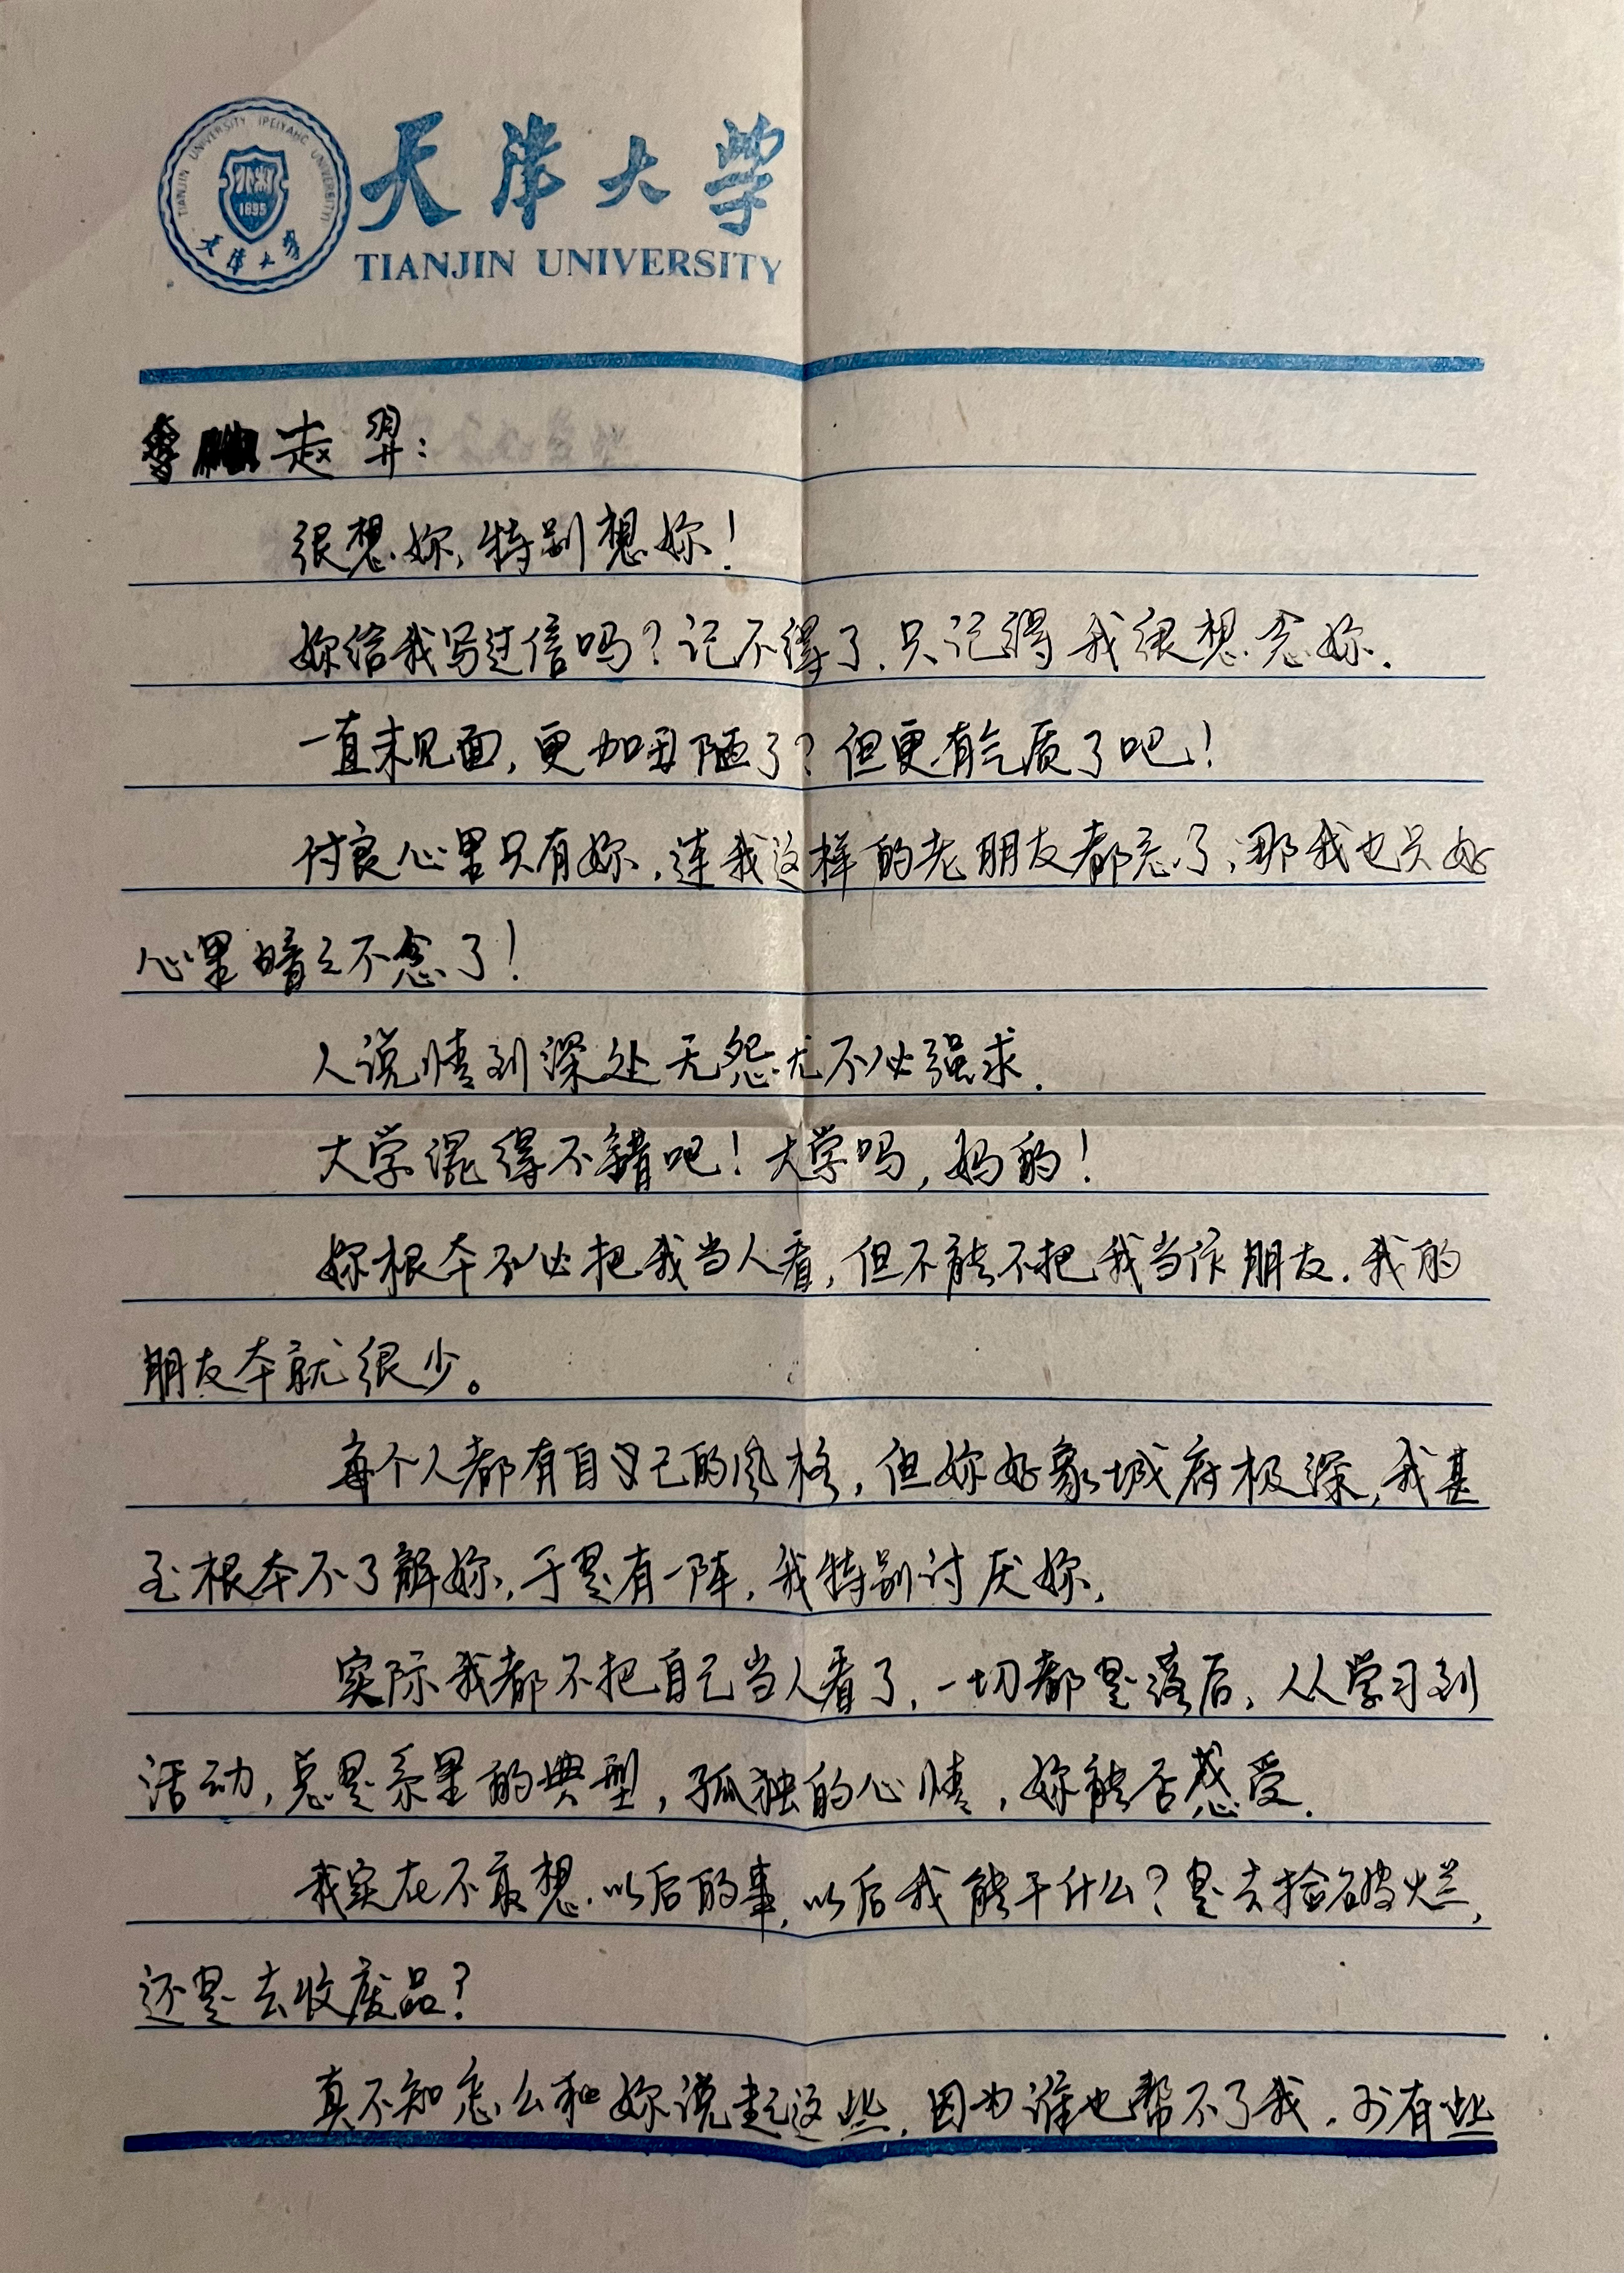 TIANJIN UNIVERSITY (PEIYANG UNIVERSITY)
1895
天津大学
天津大学
TIANJIN UNIVERSITY
赵羿：
很想妳，特别想妳！
妳给我写过信吗？记不得了，只记得我很想念妳．
一直未见面，更加丑陋了？但更有气质了吧！
付良心里只有妳，连我这样的老朋友都忘了，那我也只好
心里暗々不念了！
人说情到深处无怨尤不必强求．
大学混得不错吧！大学吗，妈的！
妳根本不必把我当人看，但不能不把我当作朋友．我的
朋友本就很少。
每个人都有自己的风格，但妳好象城府极深，我甚
至根本不了解妳，于是有一阵，我特别讨厌妳，
实际我都不把自己当人看了，一切都是落后，从学习到
活动，总是系里的典型，孤独的心情，妳能否感受．
我实在不敢想以后的事，以后我能干什么？是去捡破烂，
还是去收废品？
真不知怎么和妳说起这些，因为谁也帮不了我．有些